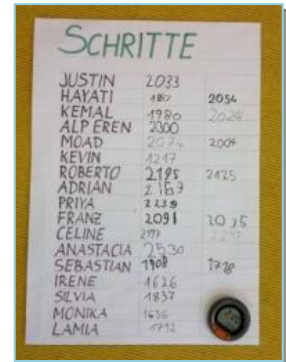 SCHRITTE
JUSTIN 2033
HAYATI 1867 2054
KEMAL 1980 2029
ALP EREN 2300
MOAD 2074 2004
KEVIN 1217
ROBERTO 2185 2125
ADRIAN 2167
PRIYA 2239
FRANZ 2091 2035
CELINE
ANASTACIA 2530
SEBASTIAN 1908 1728
IRENE 1626
SILVIA 1837
MONIKA 1636
LAMIA 1792